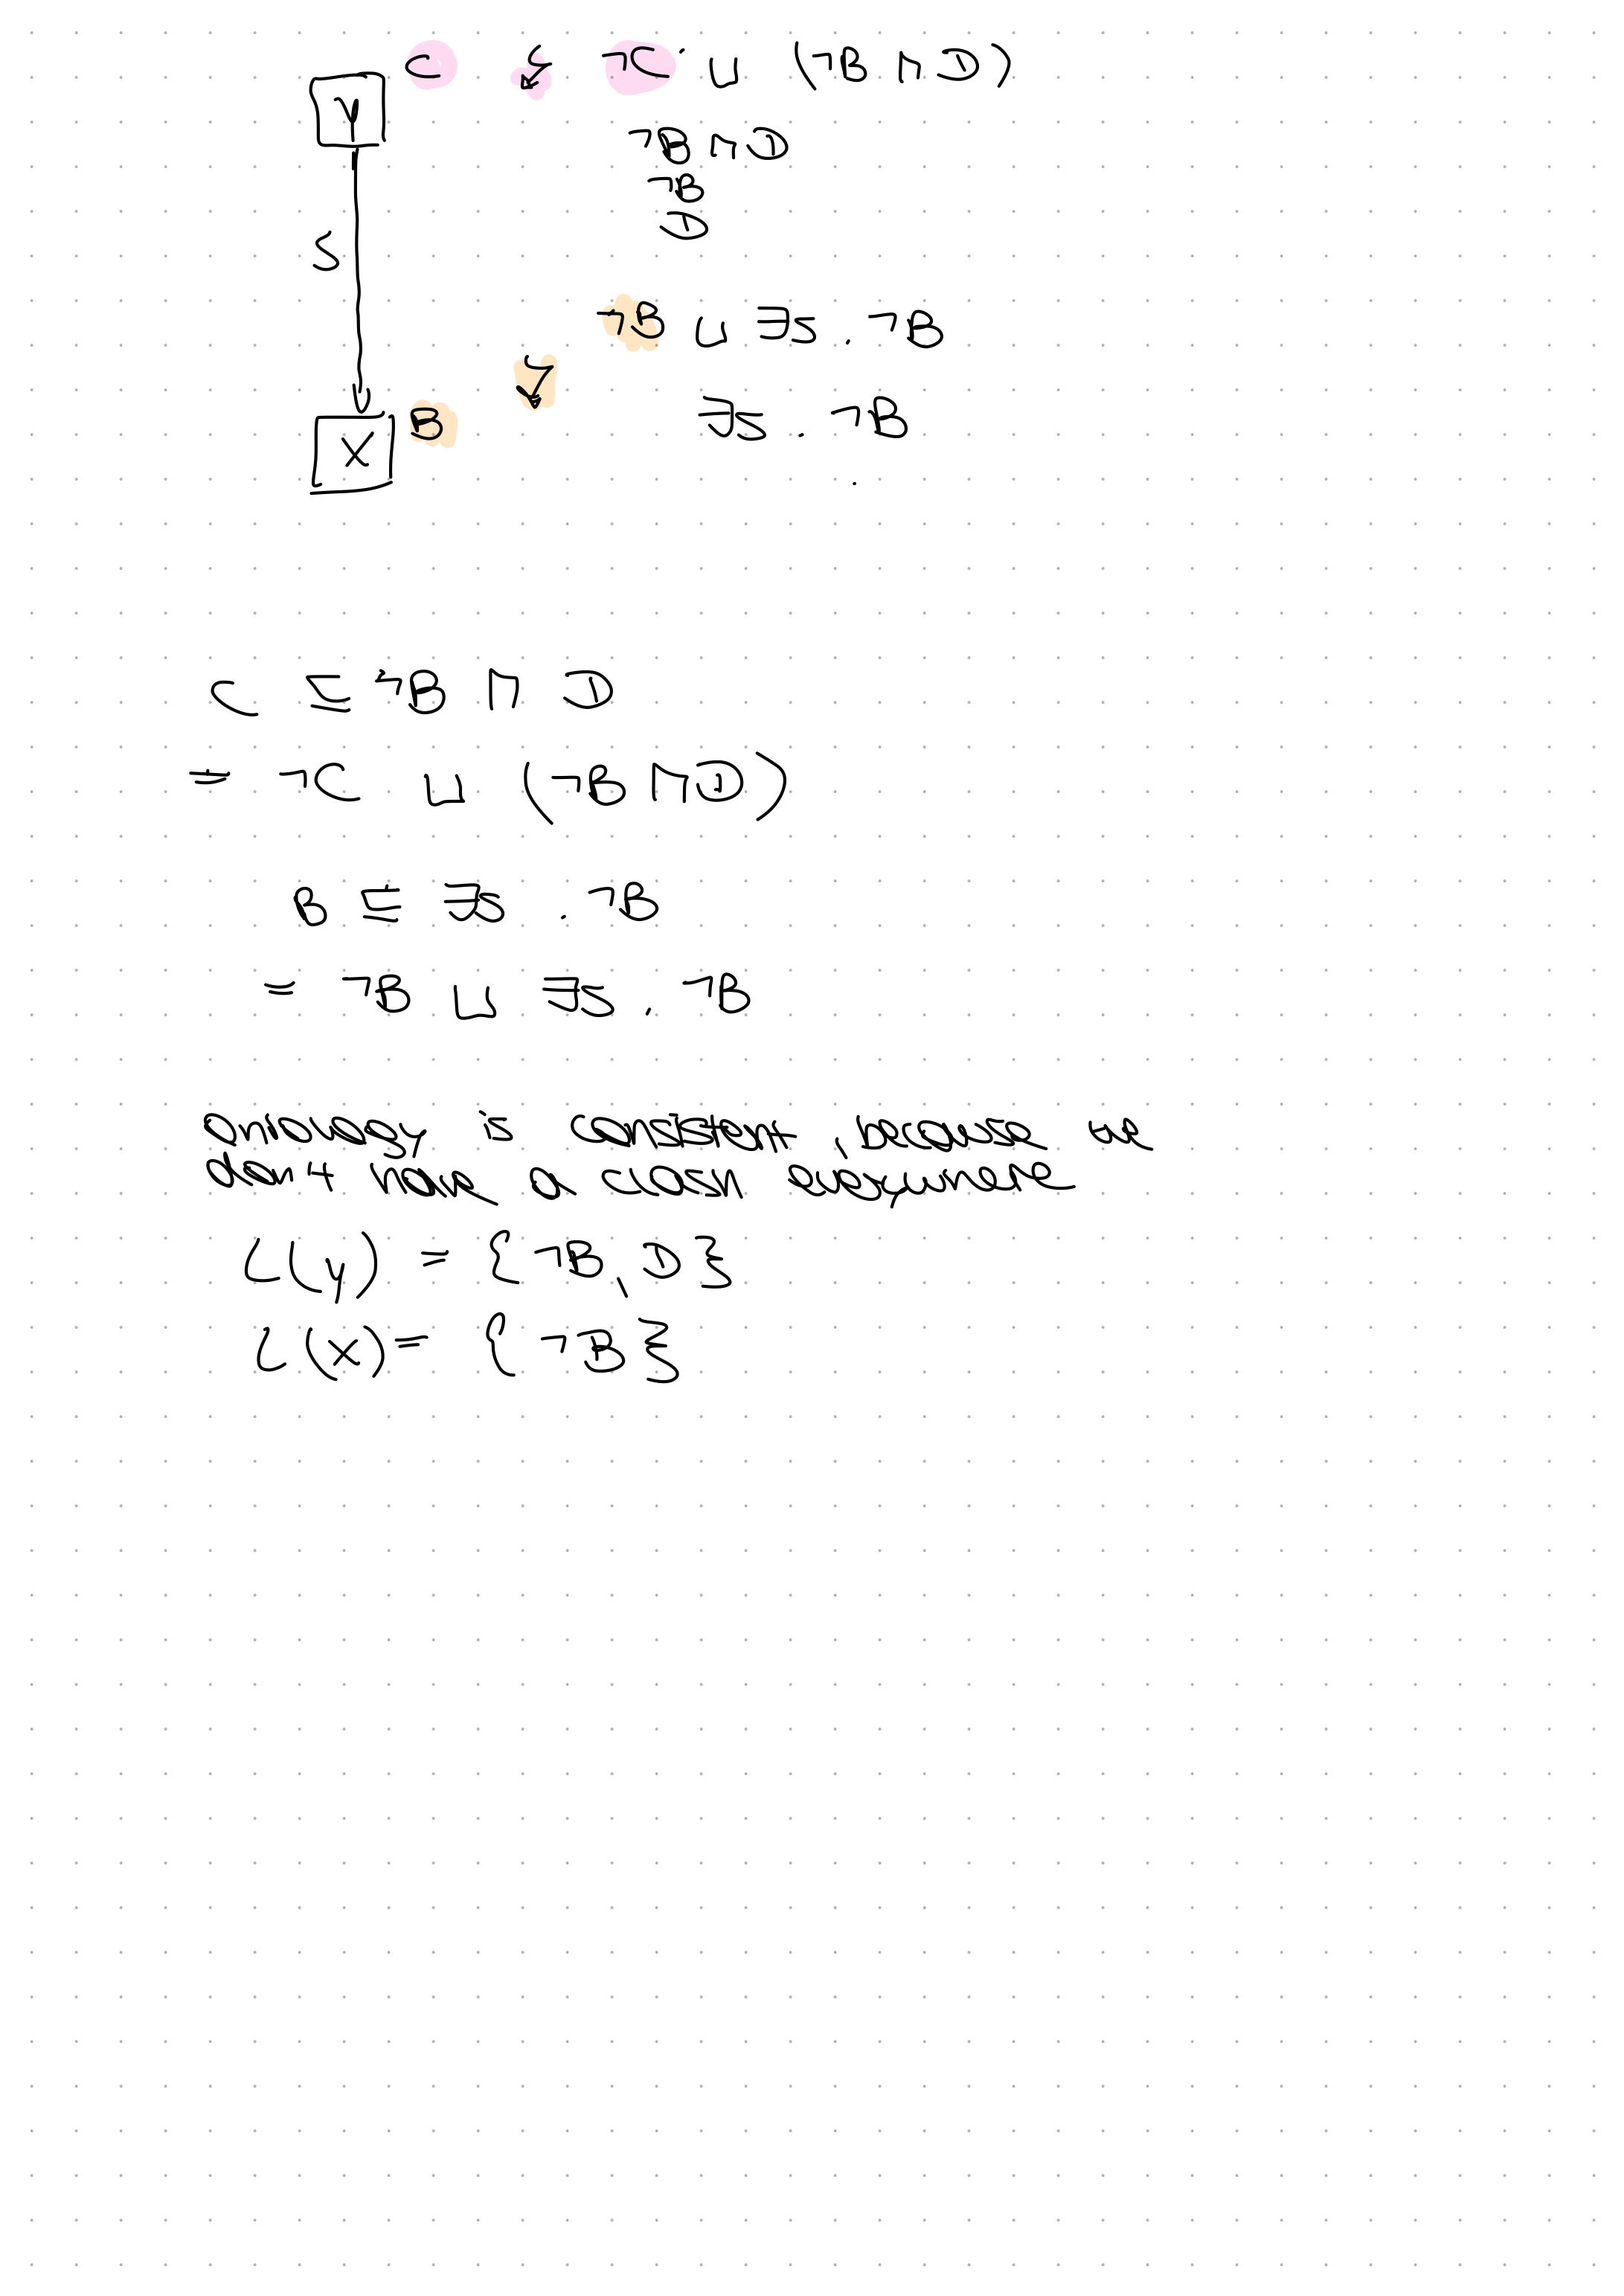 C ↯ ¬C ⊔ (¬B ⊓ D)
y
¬B ⊓ D
¬B
D
S
¬B ⊔ ∃S . ¬B
↯
B
∃S . ¬B
x
C ⊑ ¬B ⊓ D
= ¬C ⊔ (¬B ⊓ D)
B ⊑ ∃S . ¬B
= ¬B ⊔ ∃S . ¬B
Ontology is consistent, because we
don't have a clash everywhere
L(y) = {¬B, D}
L(x) = {¬B}